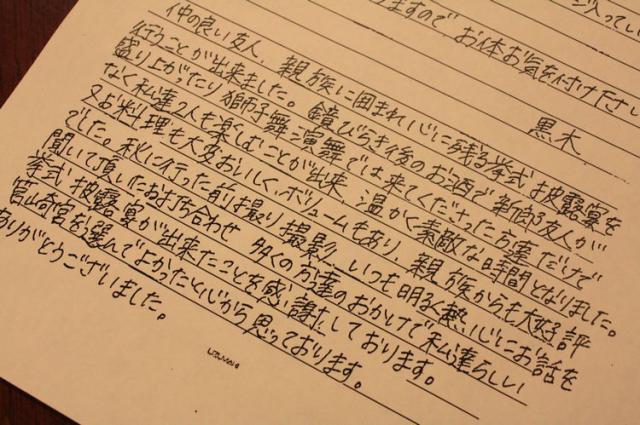 入ってい
ますので、お体お気を付け下さい
黒木
仲の良い友人、親族に囲まれ心に残る挙式・披露宴を
行うことが出来ました。鏡びらき後のお酒で新郎友人が
盛り上がたり獅子舞演舞では来てくださった方達だけで
なく私達2人も楽しむことが出来、温かく素敵な時間となりました。
又お料理も大変おいしく、ボリュームもあり、親族からも大好評
でした。秋に行った前撮り撮影、いつも明るく熱心にお話を
聞いて頂したお打ち合わせ 多くの方達のおかげで私達らしい
挙式・披露宴が出来たことを感謝しております。
筥崎宮を選んでよかったと心から思っております。
ありがとうございました。